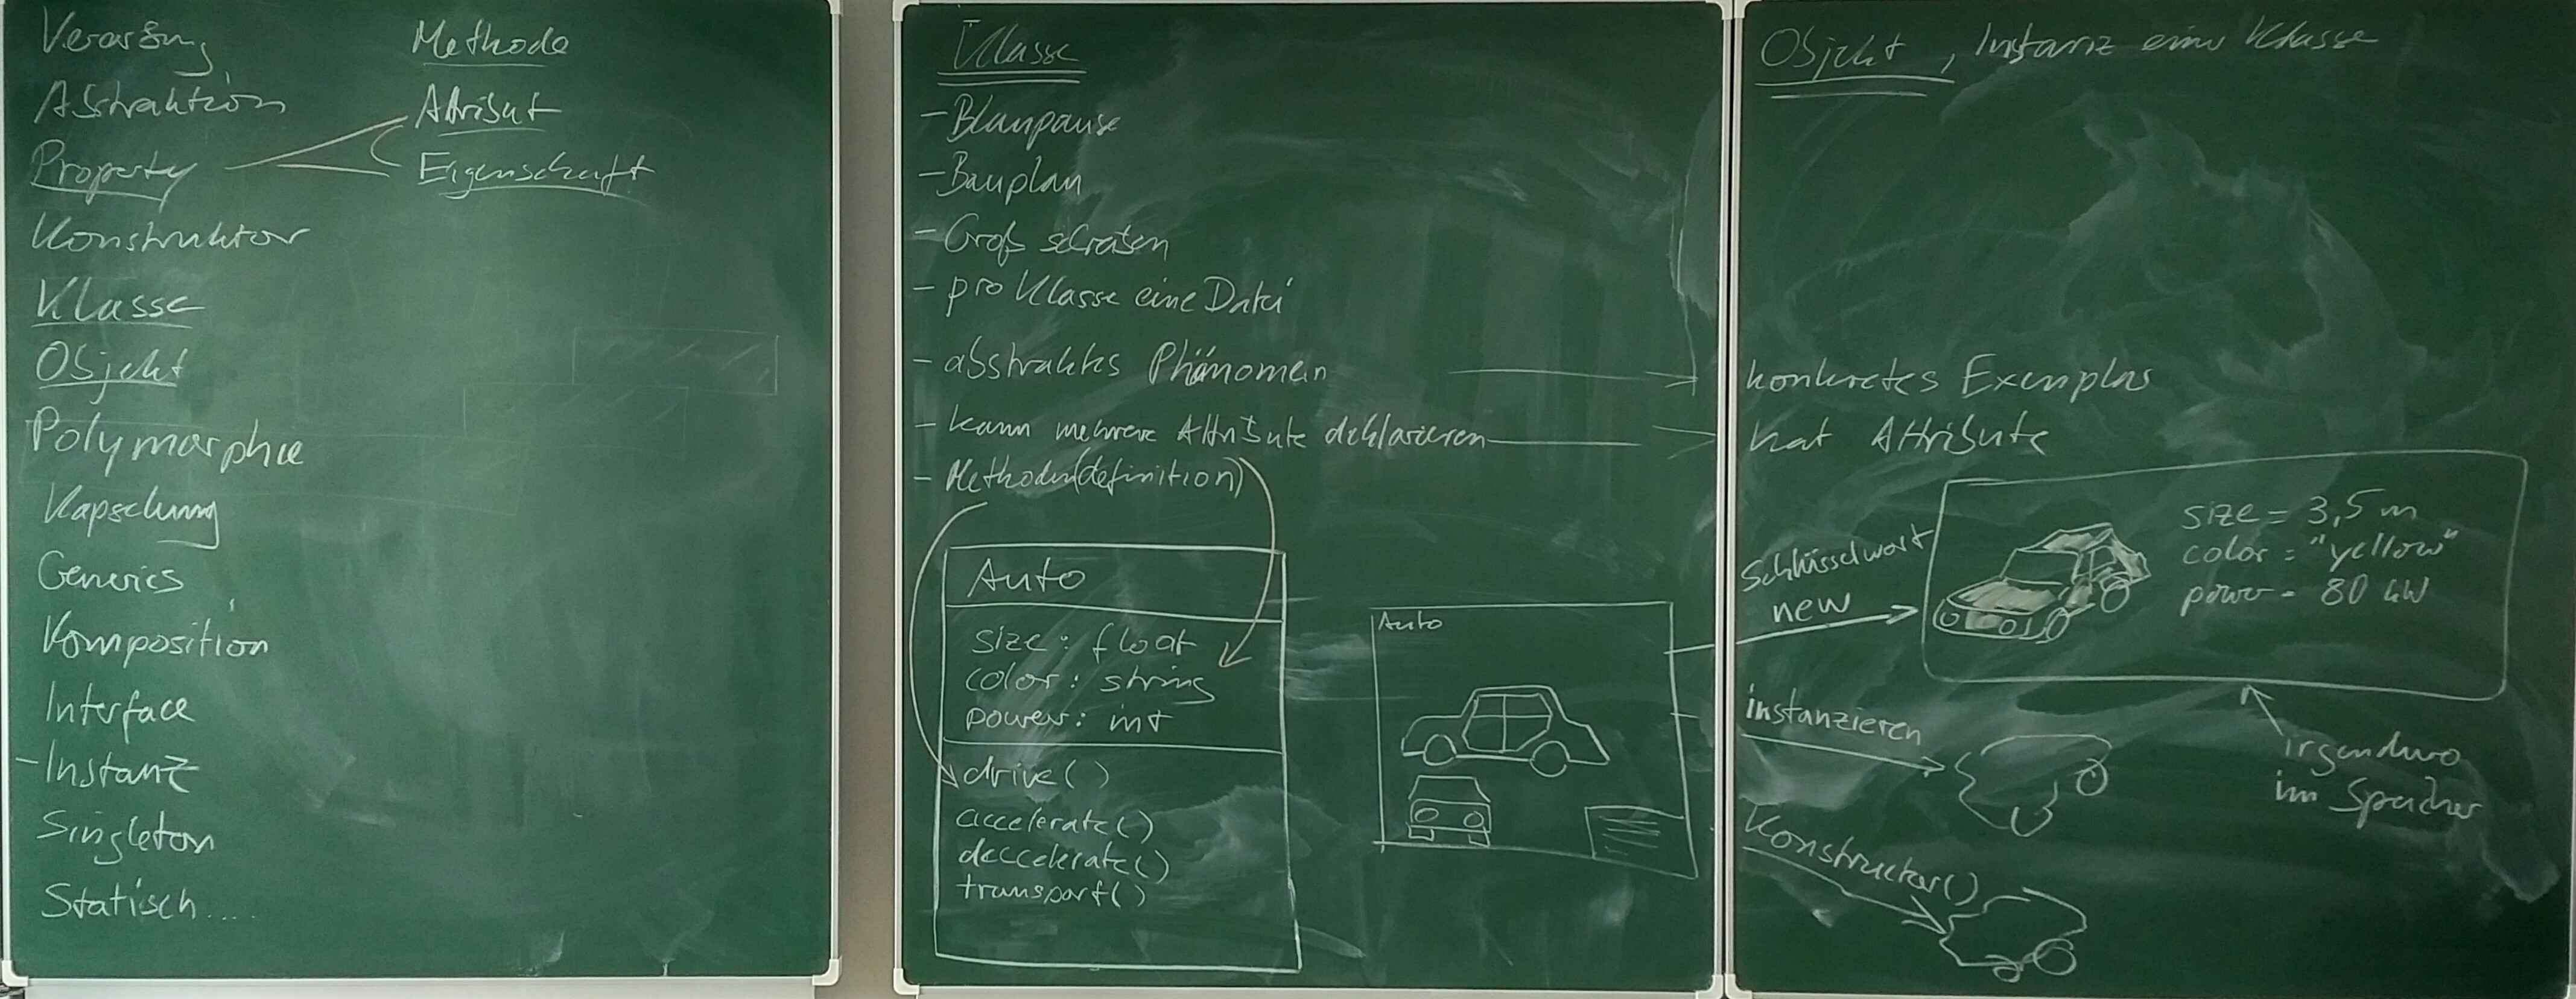 Vererbung
Abstraktion
Property
Konstruktor
Klasse
Objekt
Polymorphie
Kapselung
Generics
Komposition
Interface
- Instanz
Singleton
Statisch....
Methode
Attribut
Eigenschaft
Klasse
- Blaupause
- Bauplan
- Groß schreiben
- pro Klasse eine Datei
- abstraktes Phänomen
- kann mehrere Attribute deklarieren
- Methoden(definition)
Auto
size: float
color: string
power: int
drive()
accelerate()
deccelerate()
transport()
Auto
Objekt, Instanz einer Klasse
konkretes Exemplar
hat Attribute
Schlüsselwort
new
size = 3,5 m
color = "yellow"
power = 80 kW
instanzieren
irgendwo
im Speicher
Konstructor()